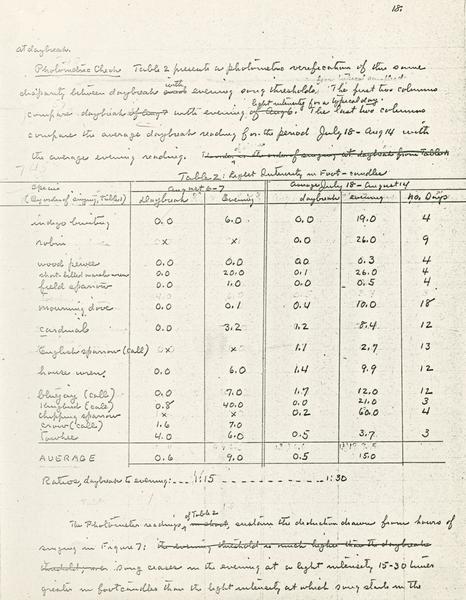 18.
at daybreak.
Photometric Check Table 2 presents a photometric verification of the same
disparity between daybreak and with evening song thresholds. The first two columns
compare daybreak of Aug 7 with evening of Aug 6. light intensity for a typical day. The last two columns
compare the average daybreak reading for the period July 18 - Aug 14 with
the average evening reading.
Table 2: Light Intensity in Foot-candles
Species August 6-7 Average July 18 - August 14
(By order of singing, Table 1) Daybreak Evening daybreak evening No. Days
indigo bunting 0.0 6.0 0.0 19.0 4
robin x x 0.0 26.0 9
wood pewee 0.0 0.0 0.0 0.3 4
short-billed marsh wren 0.0 20.0 0.1 26.0 4
field sparrow 0.0 1.0 0.0 0.5 4
mourning dove 0.0 0.1 0.4 10.0 18
cardinal 0.0 3.2 1.2 8.4 12
English sparrow (call) x x 1.1 2.7 13
house wren 0.0 6.0 1.4 9.9 12
bluejay (call) 0.0 7.0 1.7 12.0 12
kingbird (call) 0.8 40.0 0.0 21.0 3
chipping sparrow x x 0.2 60.0 4
crow (call) 1.6 7.0
towhee 4.0 6.0 0.5 3.7 3
AVERAGE 0.6 9.0 0.5 15.0
Ratios, daybreak to evening: --- 1:15 --- 1:30
The Photometer readings of Table 2 sustain the deduction drawn from hours of
singing in Figure 7: the evening threshold is much higher than the daybreak
threshold, song ceases in the evening at a light intensity 15-30 times
greater in footcandles than the light intensity at which song starts in the